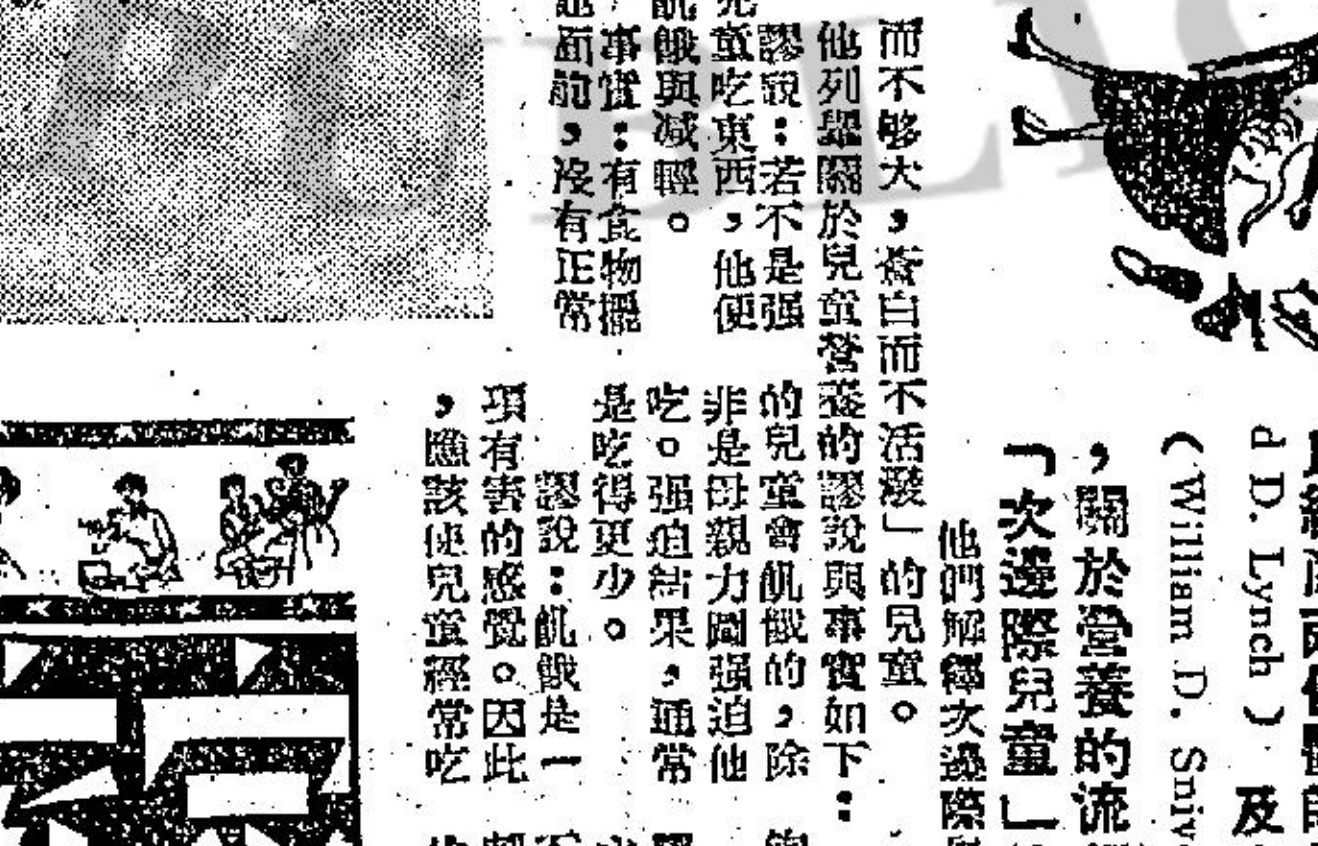 及
d D. Lynch）
（William D. Sniv
，關於營養的流
「次邊際兒童」
他們解釋次邊際
而不够大，蒼白而不活潑」的兒童。
他列舉關於兒童營養的謬說與事實如下：
謬說：若不是强
童吃東西，他便
飢餓與减輕。
事實：有食物擺
面前，沒有正常
的兒童會飢餓的，除
非是母親力圖强迫他
吃。强迫結果，通常
是吃得更少。
謬說：飢餓是一
項有害的感覺。因此
，應該使兒童經常吃